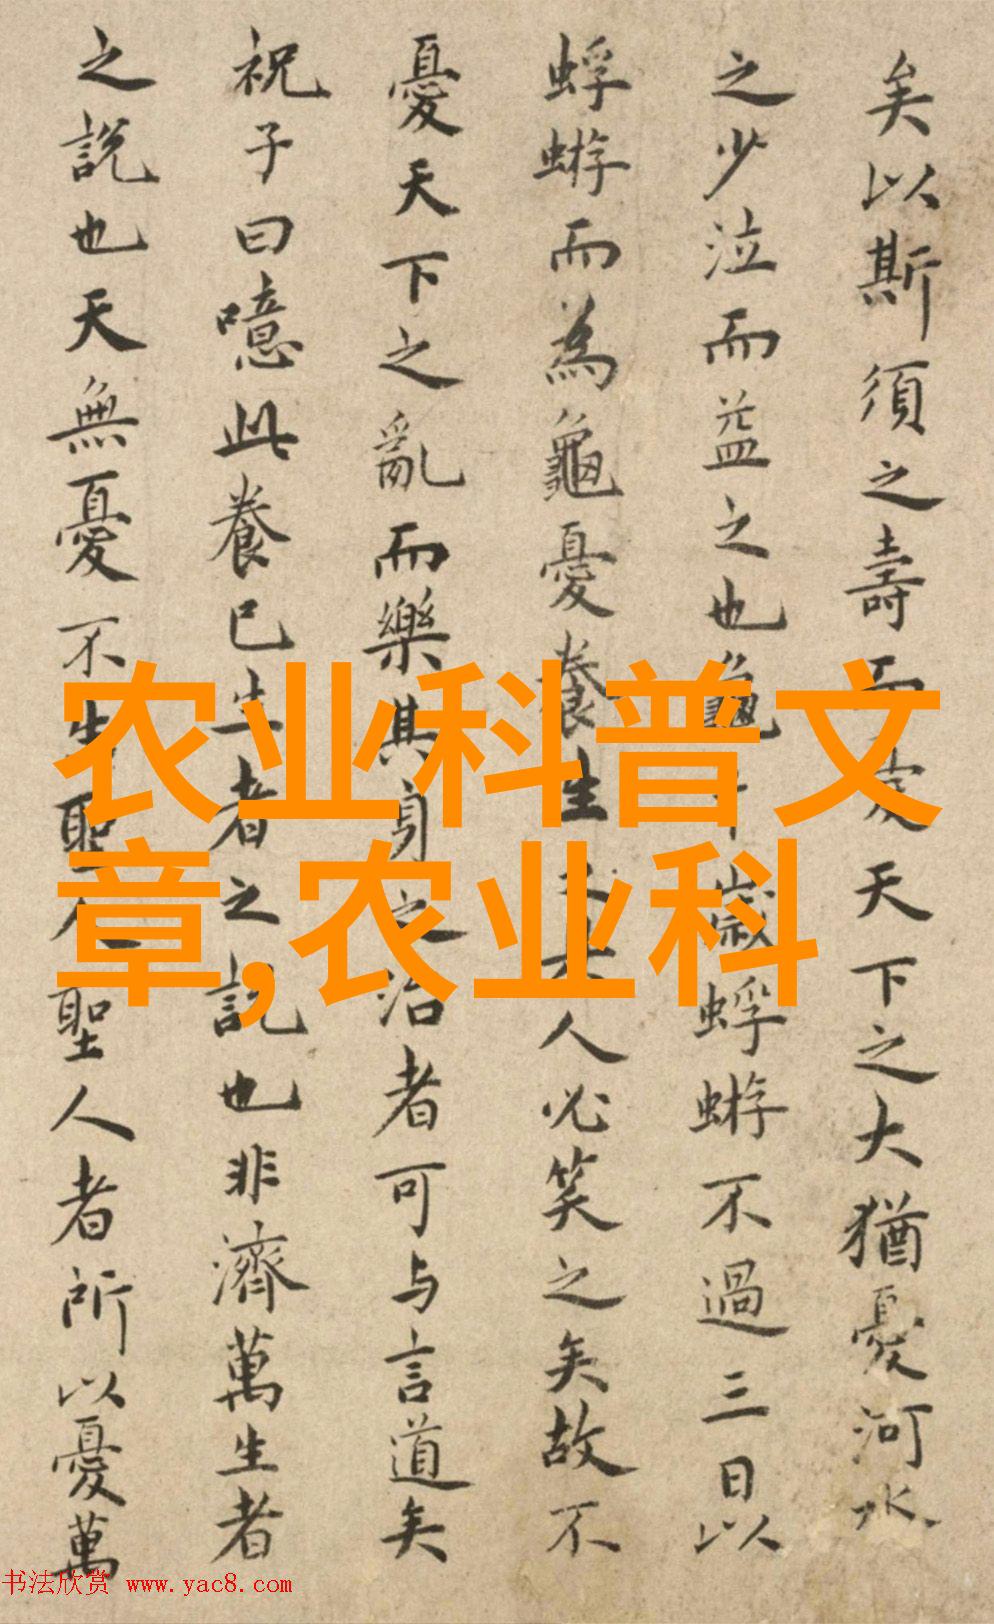 矣以斯須之壽而憂天下之大猶憂河水
之少泣而益之也龜千歲蜉蝣不過三日以
蜉蝣而為龜憂養生之具人必笑之矣故不
憂天下之亂而樂其身之治者可与言道矣
祝子曰噫此養已生者之說也非濟萬生者
之說也天無憂不生聖人聖人者所以憂萬
农业科普文
章,农业科
书法欣赏 www.yac8.com